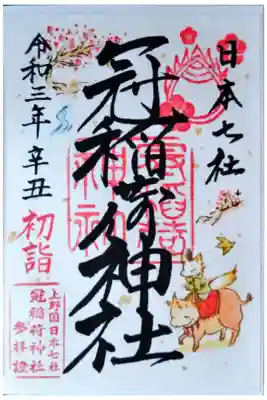 日本七社
冠稲荷神社
令和三年辛丑
初詣
上野国日本七社
冠稲荷神社
参拝證